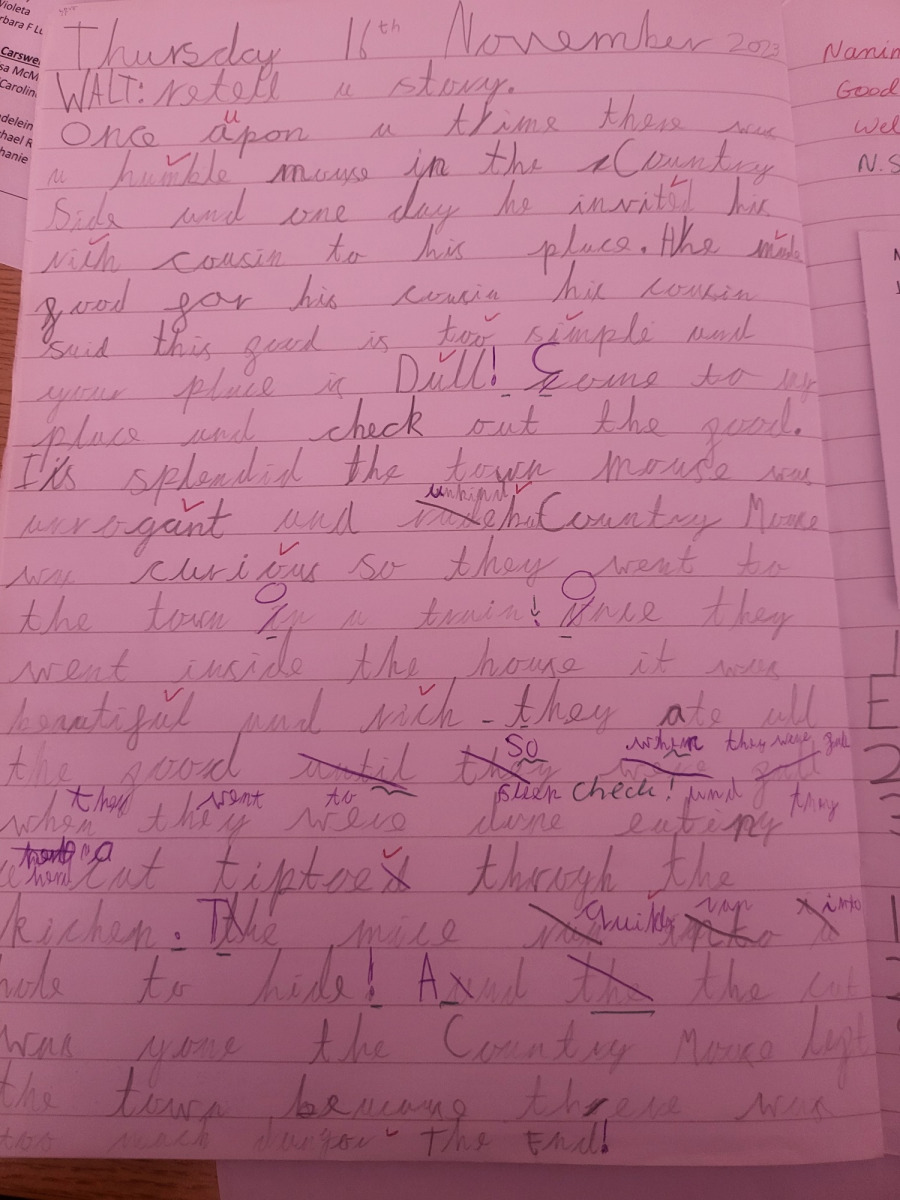 Violeta
Carswe
sa McM
Carolin
adelein
chael R
hanie
Thursday 16th November 2023
WALT: retell a story.
Once upon a time there was
a humble mouse in the Country
Side and one day he invited his
rich cousin to his place. He made
food for his cousin his cousin
said this food is too simple and
your place is Dull! Come to my
place and check out the food.
It's splendid the town mouse was
unkind
arrogant and rude but Country Mouse
was curious so they went to
the town On a train! Once they
went inside the house it was
beautiful and rich - they ate all
So when they were full
the food until they were full
they went to sleep check! and they
when they were done eating
heard a
a cat tiptoed throgh the
quickly ran into
kichen. The mice run into a
hole to hide! And the the cat
was gone the Country Mouse left
the town because there was
too much danger The End!
Good
Wel
N.S